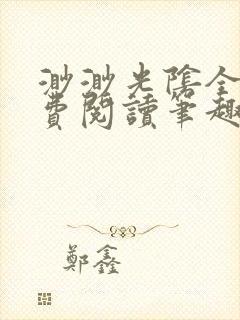 渺渺光陰全
費閱讀筆趣
鄭鑫